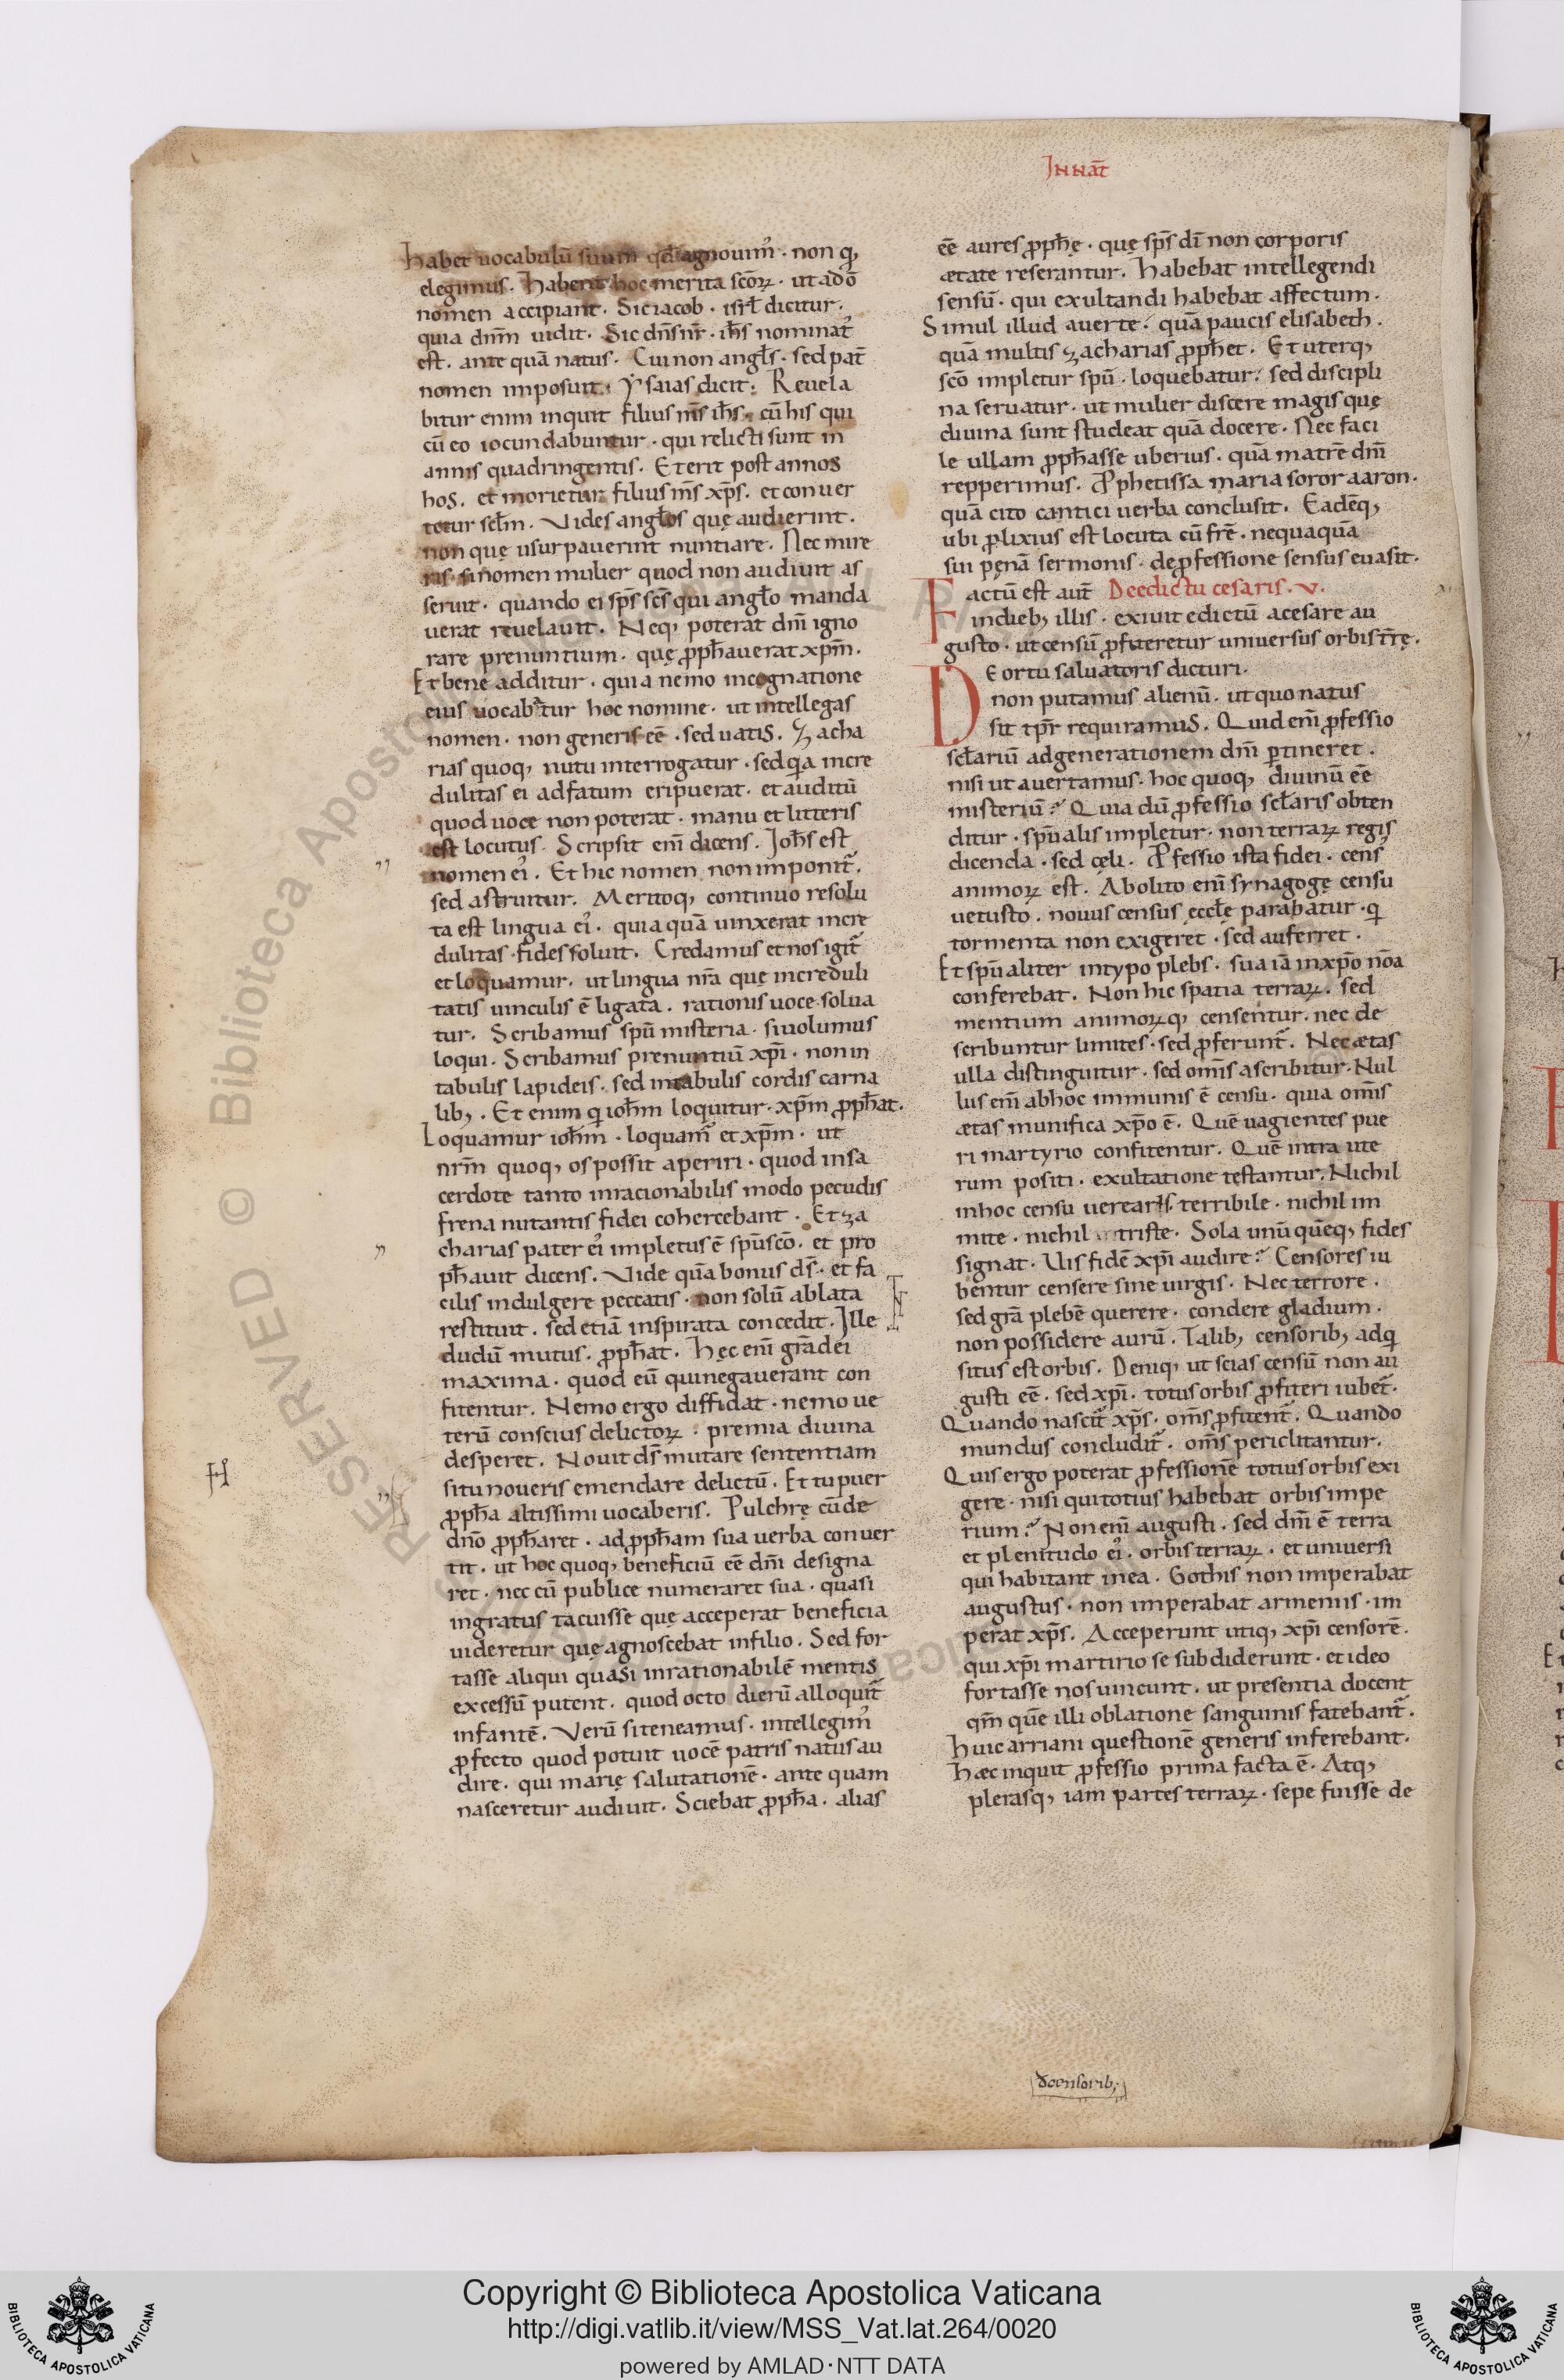 Jn nat̄
habet uocabulū suum qđ agnouim᾽· non q,
elegimus. Habent hoc merita scōꝝ· ut a dō
nomen accipiant. Sic iacob· isrł dicitur·
quia dn̄m uidit. Sic dn̄s nr̄· ih̄s nominat᾽
est. ante quā natus. Cui non angłs· sed pat̄
nomen imposuit. Ysaias dicit: Reuela
bitur enim inquit filius m̄s ih̄s· cū his qui
cū eo iocundabuntur· qui relicti sunt in
annis quadringentis. Et erit post annos
hos. et morietur filius m̄s xp̄s. et conuer
tetur sełm. Vides angłos quę audierint.
non quę usurpauerint nuntiare. Nec mire
ris· si nomen mulier quod non audiuit as
seruit· quando ei sp̄s sc̄s qui angło manda
uerat reuelauit. Neq, poterat dn̄i igno
rare prenuntium· quę ꝓph̄auerat xp̄m.
Et bene additur· quia nemo in cognatione
eius uocabatur hoc nomine· ut intellegas
nomen· non generis eē· sed uatis. Zacha
rias quoq, nutu interrogatur· sed qia incre
dulitas ei adfatum eripuerat· et auditū
quod uoce non poterat· manu et litteris
est locutus. Scripsit eni᷑ dicens. Joh̄s est
nomen ei᾽. Et hic nomen non imponit᷑.
sed astruitur. Meritoq, continuo resolu
ta est lingua ei᾽· quia quā uinxerat incre
dulitas· fides soluit. Credamus et nos igit᷑
et loquamur. ut lingua nr̄a quę increduli
tatis uinculis ē ligata. rationis uoce solua
tur. Scribamus spū misteria· si uolumus
loqui. Scribamus prenuntiū xp̄i· non in
tabulis lapideis. sed in tabulis cordis carna
lib,. Et enim qi ioh̄m loquitur· xp̄m ꝓph̄at.
Loquamur ioh̄m· loquam᷑ et xp̄m· ut
nr̄m quoq, os possit aperiri· quod in sa
cerdote tanto inracionabilis modo pecudis
frena nutantis fidei cohercebant. Et za
charias pater ei᾽ impletus ē spū scō. et pro
ph̄auit dicens. Vide quā bonus ds̄· et fa
cilis indulgere peccatis· non solū ablata
restituit. sed etiā insperata concedit. Jlle
dudū mutus. ꝓph̄at. Hęc eni᷑ gr̄a dei
maxima· quod eū qui negauerant con
fitentur. Nemo ergo diffidat· nemo ue
terū conscius delictoꝝ· premia diuina
desperet. Nouit ds̄ mutare sententiam
si tu noueris emendare delictū. Et tu puer
ꝓph̄a altissimi uocaberis. Pulchrę cū de
dn̄o ꝓph̄aret· ad ꝓph̄am sua uerba conuer
tit· ut hoc quoq, beneficiū eē dn̄i designa
ret· nec cū publice numeraret sua· quasi
ingratus tacuisse quę acceperat beneficia
uideretur quę agnoscebat in filio. Sed for
tasse aliqui quasi inrationabilē mentis
excessū putent. quod octo dierū alloquit᷑
infantē. Verū si teneamus· intellegim᾽
ꝓfecto quod potuit uocē patris natus au
dire. qui marię salutationē· ante quam
nasceretur audiuit. Sciebat ꝓph̄a· alias
H
eē aures ꝓph̄ę· quę sp̄s dī non corporis
ætate reserantur. Habebat intellegendi
sensū· qui exultandi habebat affectum.
Simul illud auerte· quā paucis elisabeth.
quā multis zacharias ꝓph̄et. Et uterq,
scō impletur spū· loquebatur· sed discipli
na seruatur· ut mulier discere magis quę
diuina sunt studeat quā docere. Nec faci
le ullam ꝓph̄asse uberius· quā matrē dn̄i
repperimus. Ꝓphetissa maria soror aaron.
quā cito cantici uerba conclusit. Eadēq,
ubi ꝓlixius est locuta cū fr̄e· nequaquā
sui pęnā sermonis· de ꝓfessione sensus euasit.
Factū est aut̄ De edictu cesaris. v.
in dieb, illis· exiuit edictū a cesare au
gusto· ut censū ꝓfiteretur uniuersus orbis tr̄rę.
De ortu saluatoris dicturi.
non putamus alienū· ut quo natus
sit tp̄r requiramus. Quid eni᷑ ꝓfessio
scłariū ad generationem dn̄i ꝑtineret.
nisi ut auertamus· hoc quoq, diuinū eē
misteriū? Quia dū ꝓfessio scłaris obten
ditur· spūalis impletur· non terraꝝ regis
dicenda· sed cęli. Ꝓfessio ista fidei· cens᾽
animoꝝ est. Abolito eni᷑ synagogę censu
uetusto. nouus census ęccłę parabatur· qi
tormenta non exigeret· sed auferret.
Et spūaliter in typo plebs· sua iā in xp̄o nōa
conferebat. Non hic spatia terraꝝ. sed
mentium animoꝝq, censentur. nec de
scribuntur limites· sed ꝓferunt᷑. Nec ætas
ulla distinguitur· sed om̄s ascribitur. Nul
lus eni᷑ ab hoc immunis ē censu· quia om̄s
ætas munifica xp̄o ē. Quē uagientes pue
ri martyrio confitentur. Quē intra ute
rum positi· exultatione testantur. Nichil
in hoc censu uerearis terribile· nichil im
mite· nichil triste· Sola unū quēq, fides
signat. Uis fidē xp̄i audire? Censores iu
bentur censere sine uirgis. Nec terrore.
sed gr̄a plebē querere· condere gladium.
non possidere aurū. Talib, censorib, adqi
situs est orbis. Deniq, ut scias censū non au
gusti eē. sed xp̄i· totus orbis ꝓfiteri iubet᷑.
Quando nascit᷑ xp̄s· om̄s ꝓfitent᷑. Quando
mundus concludit᷑· om̄s periclitantur.
Quis ergo poterat ꝓfessionē totius orbis exi
gere· nisi qui totius habebat orbis impe
rium? Non eni᷑ augusti· sed dn̄i ē terra
et plenitudo ei᾽· orbis terraꝝ· et uniuersi
qui habitant in ea. Gothis non imperabat
augustus· non imperabat armeniis· im
perat xp̄s. Acceperunt utiq, xp̄i censorē.
qui xp̄i martirio se subdiderunt· et ideo
fortasse nos uincunt. ut presentia docent
qm̄ quē illi oblatione sanguinis fatebant᷑.
Huic arriani questionē generis inferebant.
Hæc inquit ꝓfessio prima facta ē. Atq,
plerasq, iam partes terraꝝ· sepe fuisse de
Copyright © Biblioteca Apostolica Vaticana
http://digi.vatlib.it/view/MSS_Vat.lat.264/0020
powered by AMLAD·NTT DATA
BIBLIOTECA APOSTOLICA VATICANA
BIBLIOTECA APOSTOLICA VATICANA